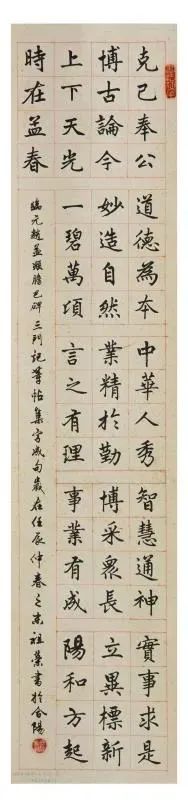 克己奉公道德為本中華人秀智慧通神實事求是
博古論今妙造自然業精於勤博采眾長立異標新
上下天光一碧萬頃言之有理事業有成陽和方起
時在孟春
臨元趙孟頫膽巴碑三門記等帖集字成句歲在壬辰仲春之 祖榮書於合陽